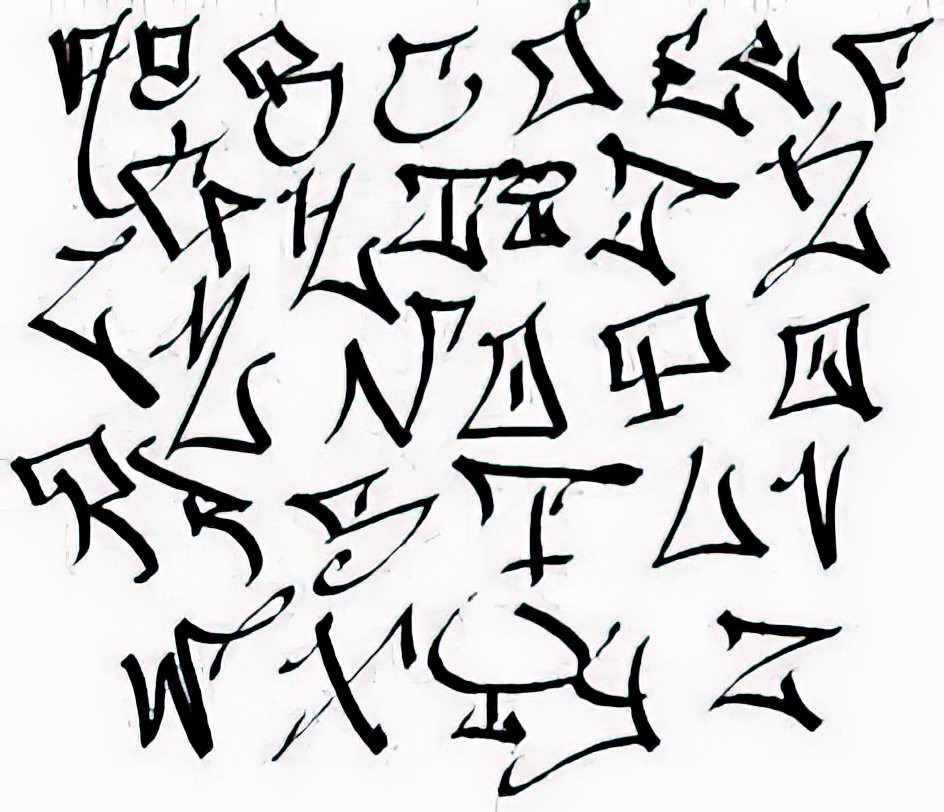 A a B C D E e F
G H I i J K
L M N O P Q
R R S T U V
W X Y y Z